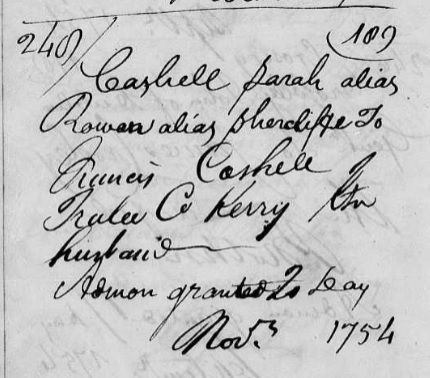 248/ 189
Cashell Sarah alias
Rowan alias Shercliffe To
Francis Cashell
Tralee Co Kerry
husband
Admon granted 2 Day
Novr. 1754